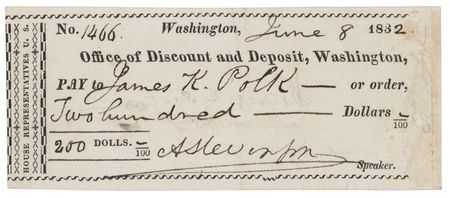 HOUSE REPRESENTATIVES U. S.
No. 1466. Washington, June 8 1832.
Office of Discount and Deposit, Washington,
PAY to James K. Polk — or order,
Two hundred — Dollars -/100
200 DOLLS. -/100 A Stevenson
Speaker.